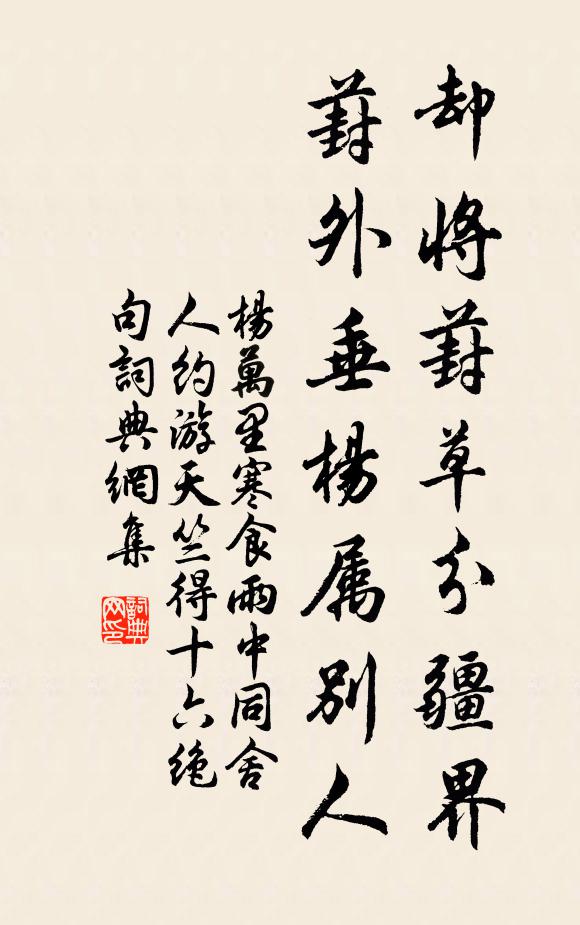 却將葑草分疆界
葑外垂楊属别人
楊萬里寒食雨中同舍
人約游天竺得十六绝
句詞典網集
詞典网印